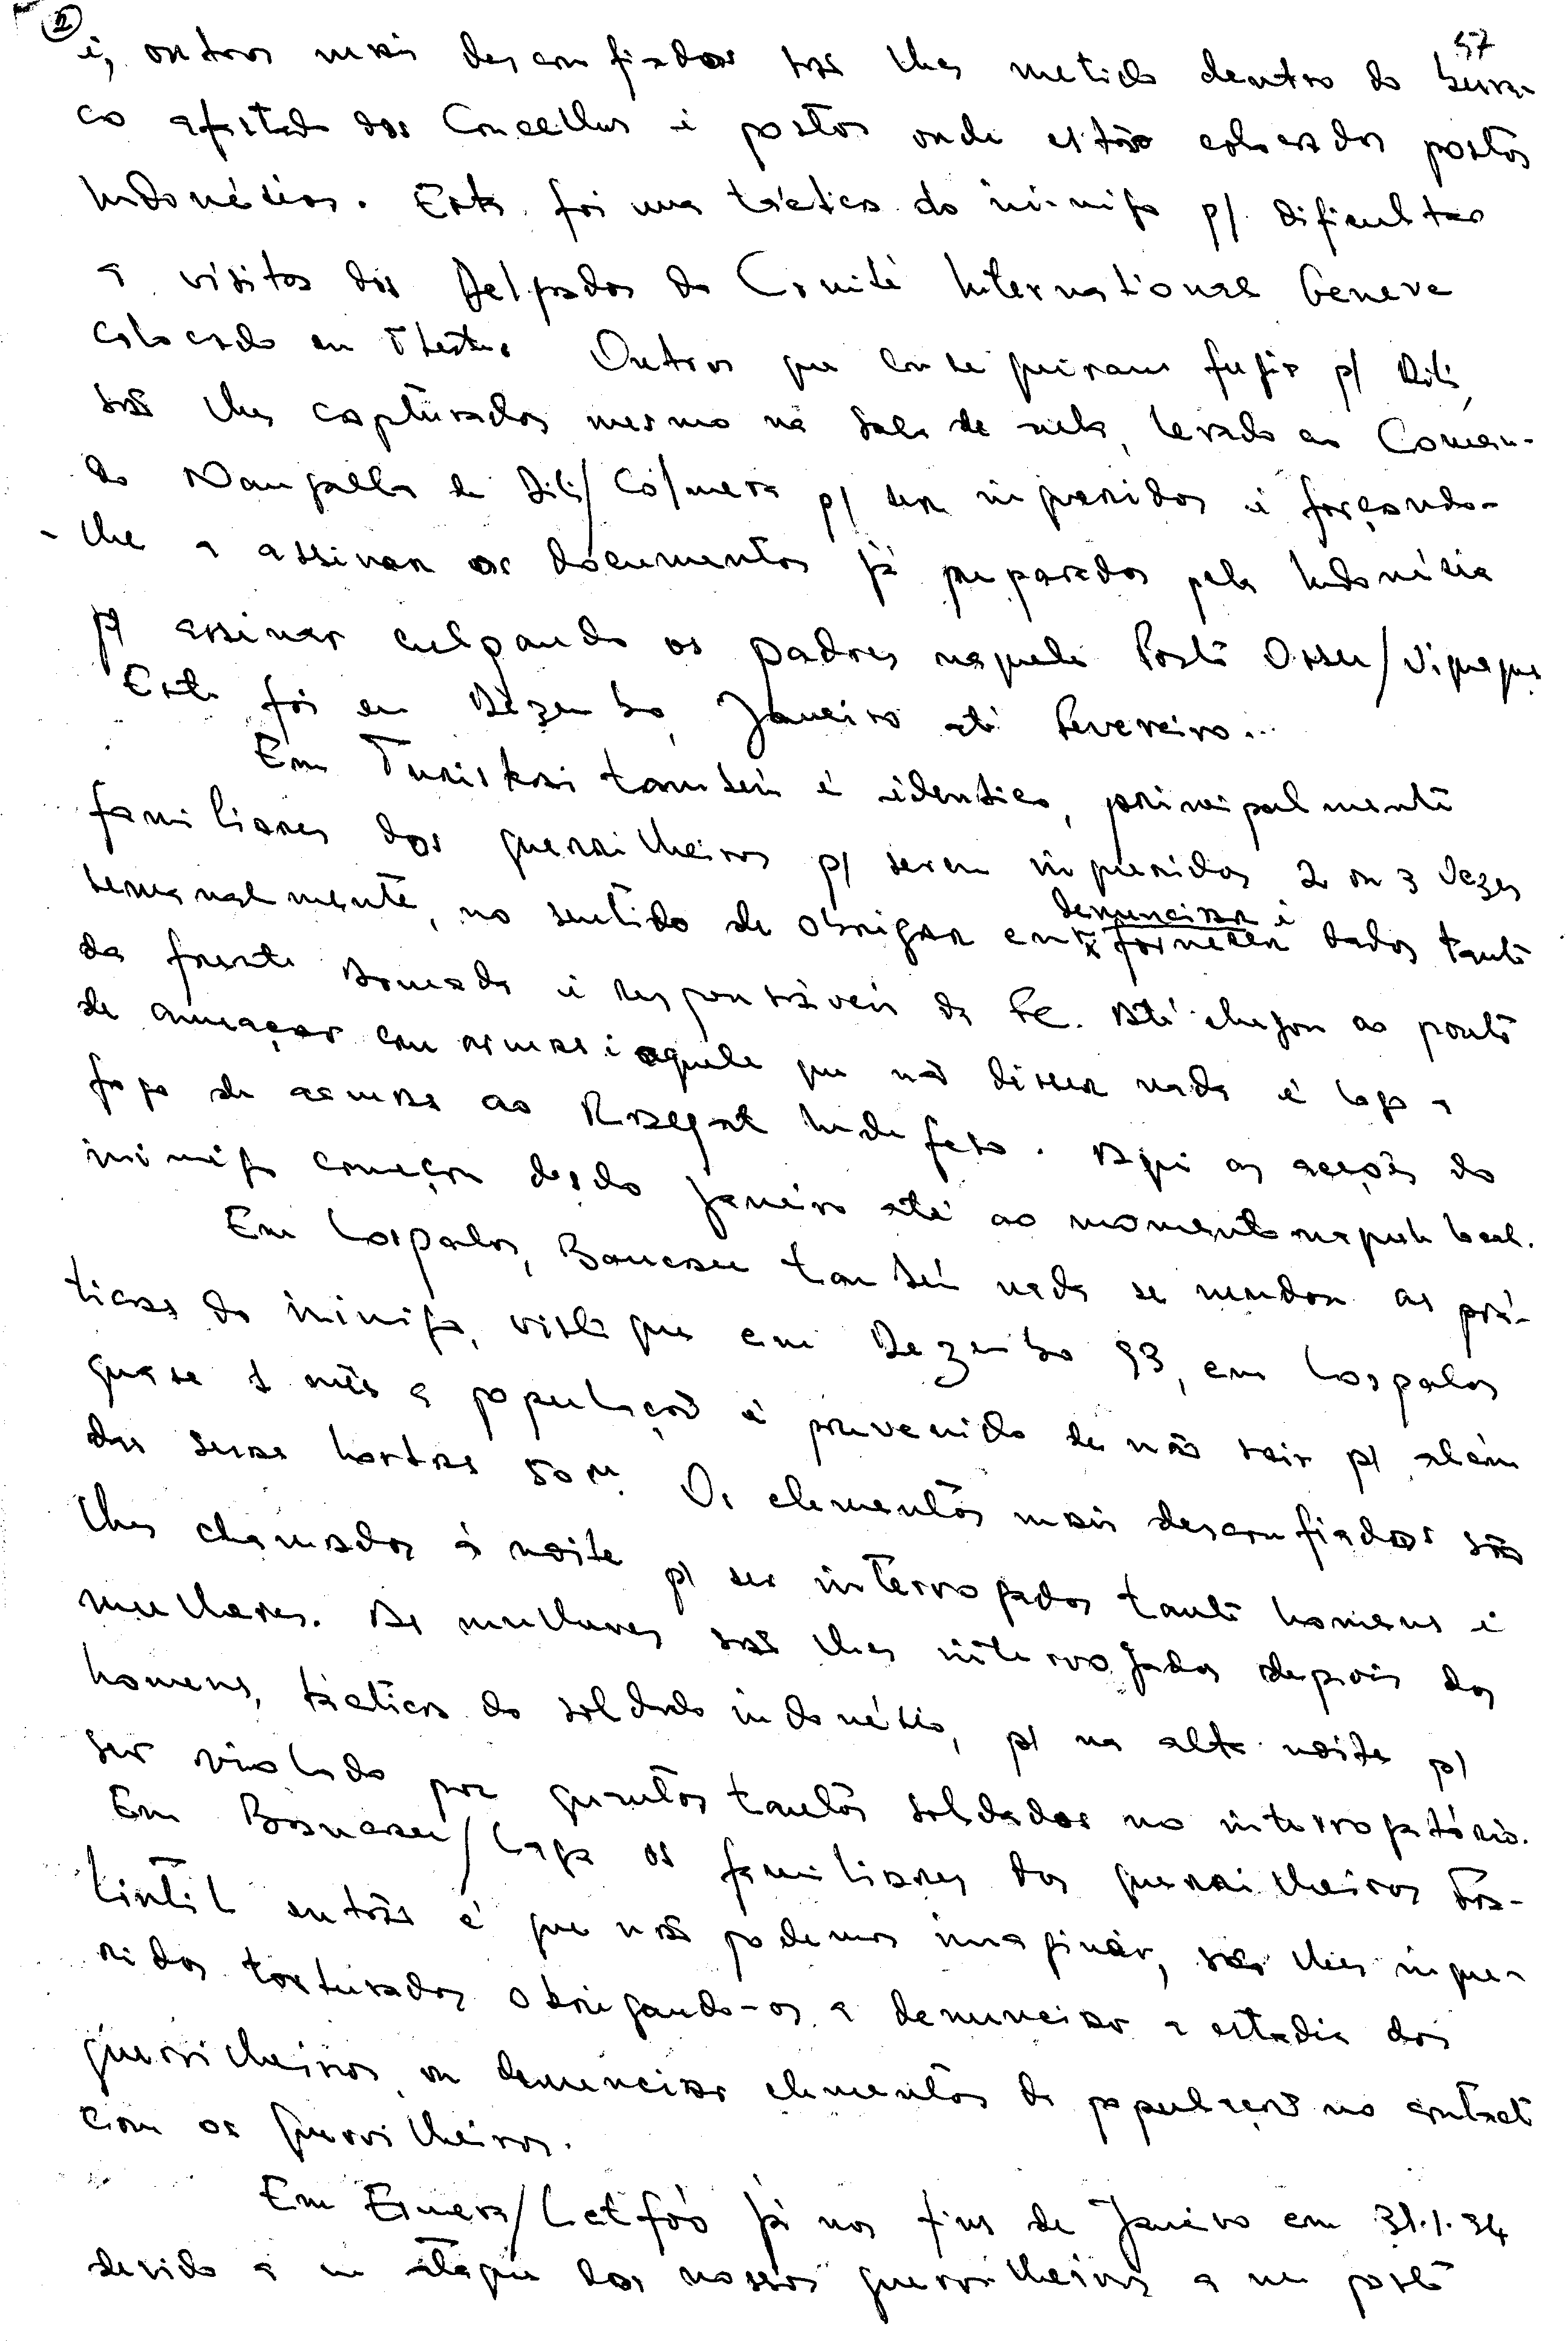 2
57
é, outros mais desconfiados são lhes metido dentro do bura-
co afastado dos Concelhos e postos onde estão colocados postos
Indonésios. Esta foi uma táctica do inimigo p/ dificultar
a visitas dos Delgados do Comité International Geneve
colocado em Outros que conseguiram fugir p/ Dili,
são lhes capturados mesmo na sala de aula, levado ao Coman-
do Nangalla de Dili/Cólmera p/ ser inqueridos e forçando-
-lhe a assinar os documentos já preparados pela Indonésia
p/ assinar culpando os padres naquele Posto Ossu/Viqueque
Este foi em Dezembro, Janeiro até Fevereiro...
Em Turiskai também é identico, principalmente
familiares dos guerrilheiros p/ serem inqueridos 2 ou 3 vezes
semanalmente, no sentido de obrigar em
denunciar e
fornecer dados tanto
da frente armada e responsáveis da FC. Até chegou ao ponto
de ameaçar com armas i aquele que não disser nada é logo a
fogo de armas ao Indefeso. Aqui as acções do
inimigo começou desdo Janeiro até ao momento naquele local.
Em Lospalos, Baucau também nada se mudou as prá-
ticas do inimigo, visto que em Dezembro 93, em Lospalos
quase 1 mês a população é prevenido de não sair p/ além
das suas hortas 50m. Os elementos mais desconfiados são
lhes chamados à noite p/ ser interrogados tanto homens e
mulheres. As mulheres são lhes interrogados depois dos
homens, tácticas do soldado indonésio, p/ na alta noite p/
ser violado por quantos tantos soldados no interrogatório.
Em Baucau/Laga os familiares dos guerrilheiros Fa-
lintil então é que não podemos imaginar, são lhes inque-
ridos torturados obrigando-os a denunciar a estadia dos
guerrilheiros, ou denunciar elementos da população no contacto
com os guerrilheiros.
Em Ermera/Letfóó já nos fins de Janeiro em 31.1.94
devido a um ataque dos nossos guerrilheiros a um posto